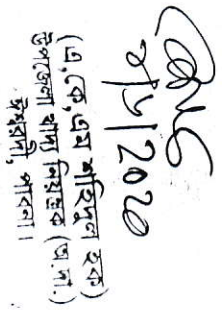 (এ,কে,এম শহিদুল হক)
উপজেলা খাদ্য নিয়ন্ত্রক (অ.দা.)
ঈশ্বরদী, পাবনা।